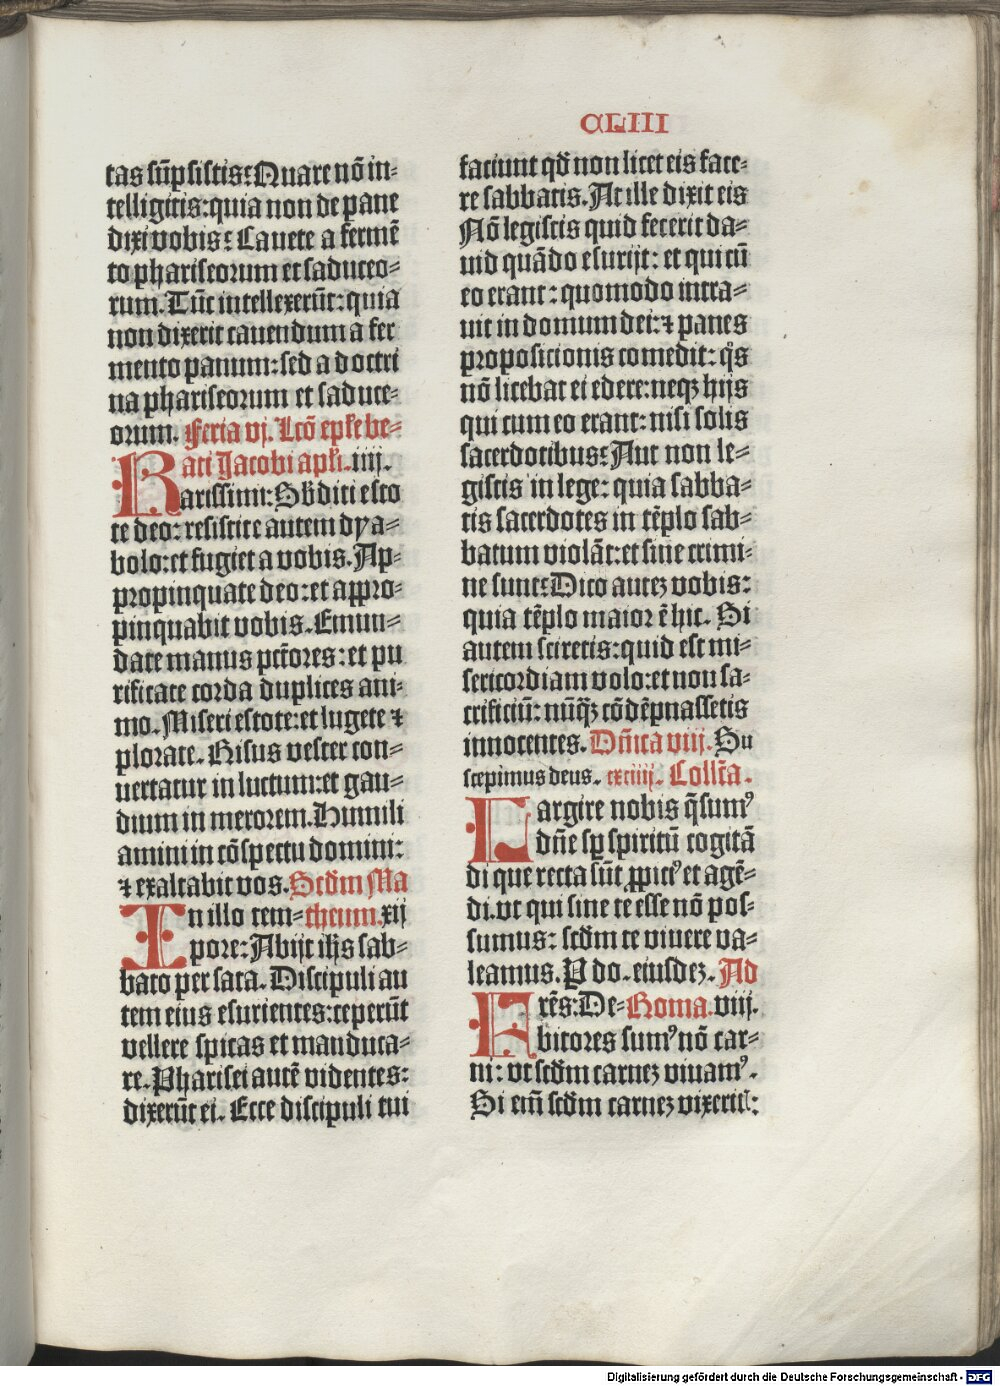 CLIII
tas sūpsistis: Quare nō in-
telligitis: quia non de pane
dixi vobis: Cauete a fermē
to phariseorum et saduceo-
rum. Tūc intellexerūt: quia
non dixerit cauendum a fer
mento panum: sed a doctri
na phariseorum et saduce-
orum. Feria vj. Lcō ep̄le be-
ati Jacobi apl̄i. iiij.
Rarissimi: Sb̄diti esto
te deo: resistite autem dya-
bolo: et fugiet a vobis. Ap-
propinquate deo: et appro-
pinquabit vobis. Emun-
date manus pctōres: et pu
rificate corda duplices ani-
mo. Miseri estote: et lugete ⁊
plorate. Risus vester con-
uertatur in luctum: et gau-
dium in merorem. Humili
amini in cōspectu domini:
⁊ exaltabit vos. Scd̄m Ma
In illo tem- theum. xij
pore: Abijt ih̄s sab-
bato per sata. Discipuli au
tem eius esurientes: ceperūt
vellere spicas et manduca-
re. Pharisei autē videntes:
dixerūt ei. Ecce discipuli tui
faciunt qd̄ non licet eis face-
re sabbatis. At ille dixit eis
Nō legistis quid fecerit da-
uid quādo esurijt: et qui cū
eo erant: quomodo intra-
uit in domum dei: ⁊ panes
proposicionis comedit: q̄s
nō licebat ei edere: neqꝫ hijs
qui cum eo erant: nisi solis
sacerdotibus: Aut non le-
gistis in lege: quia sabba-
tis sacerdotes in tēplo sab-
batum violāt: et sine crimi-
ne sunt: Dico auteꝫ vobis:
quia tēplo maior ē hic. Si
autem sciretis: quid est mi-
sericordiam volo: et non sa-
crificiū: nūq̄ꝫ cōdēpnassetis
innocentes. Dn̄ica viij. Su
scepimus deus. cxciiij. Collc̄ta.
Largire nobis q̄sumꝰ
dn̄e sꝑ spiritū cogitā
di que recta sūt ꝓpiciꝰ et agē-
di. vt qui sine te esse nō pos-
sumus: scd̄m te viuere va-
leamus. P do. eiusdeꝫ. Ad
Frēs: De- Roma. viij.
bitores sumꝰ nō car-
ni: vt scd̄m carneꝫ viuamꝰ.
Si em̄ scd̄m carneꝫ vixerit̄:
Digitalisierung gefördert durch die Deutsche Forschungsgemeinschaft - DFG